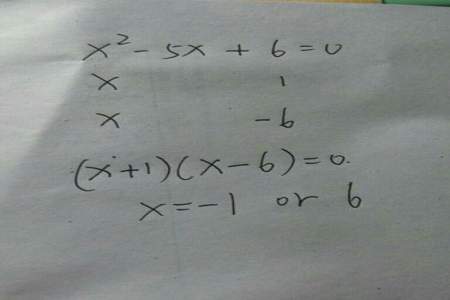 x² - 5x + 6 = 0
x 1
x -6
(x+1)(x-6)=0.
x=-1 or 6